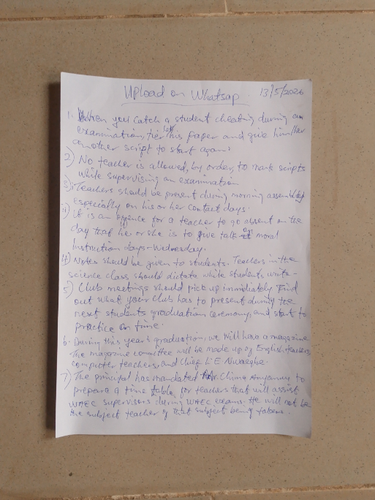 Upload on Whatsap 13/5/2026
1. When you catch a student cheating during an
examination, tier his paper and give him/her
another script to start again.
2) No teacher is allowed, by order, to mark scripts
while supervising an examination
3) Teachers should be present during morning assembly
especially on his or her contact days.
4) It is an offence for a teacher to go absent on the
day that he or she is to give talk on moral
Instruction days - Wednesday.
4) Notes should be given to students. Teachers in the
science class should dictate while students write.
5) Club meetings should pick up immediately. Find
out what your club has to present during the
next students graduation ceremony and start to
practice on time.
6. During this year's graduation, we will have a magazine.
The magazine committee will be made up of English teachers,
computer teachers, and Chief L.E
7) The principal has mandated Chima to
prepare a time table for teachers that will assist
WAEC supervisors during WAEC exams. He will not be
the subject teacher of that subject being taken.